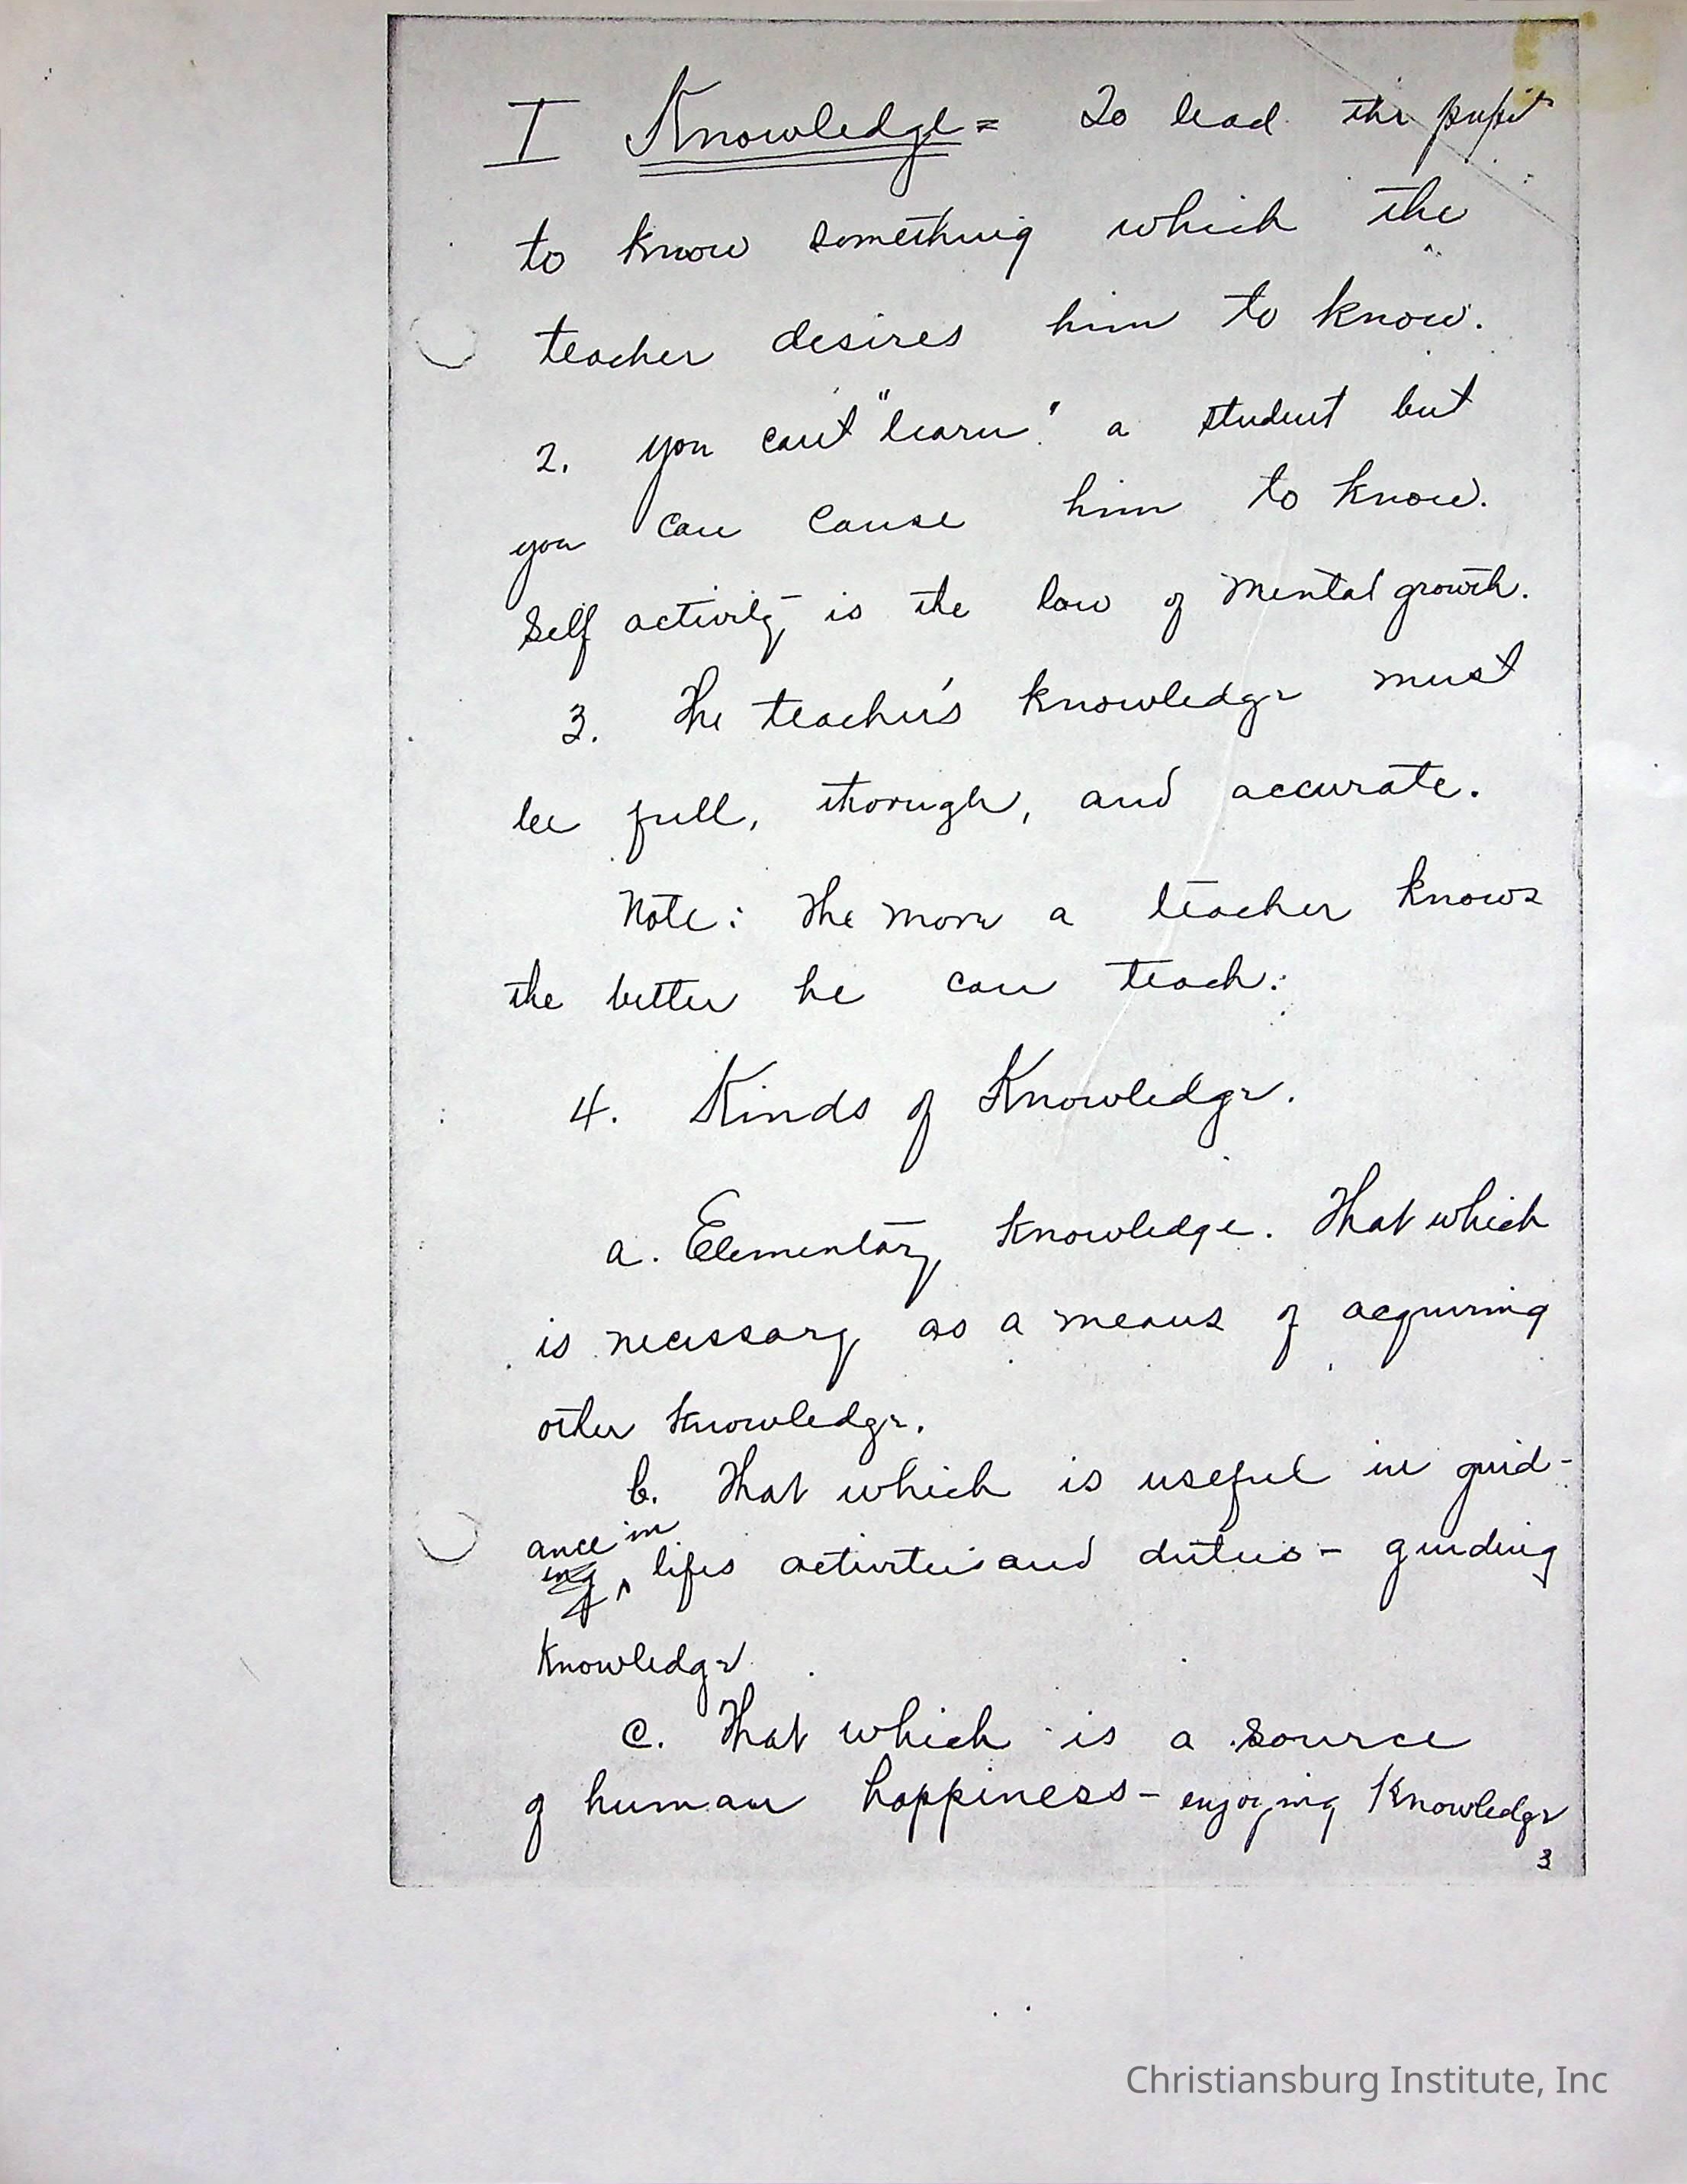 I Knowledge = To lead the pupil
to know something which the
teacher desires him to know.
2. you can't "learn" a student but
you can cause him to know.
Self activity is the law of mental growth.
3. The teacher's knowledge must
be full, thorough, and accurate.
Note: The more a teacher knows
the better he can teach:
4. Kinds of Knowledge.
a. Elementary knowledge. That which
is necessary as a means of acquiring
other knowledge.
b. That which is useful in guid-
ance in
lifes activities and duties - guiding
knowledge
c. That which is a source
of human happiness - enjoying Knowledge
3
Christiansburg Institute, Inc